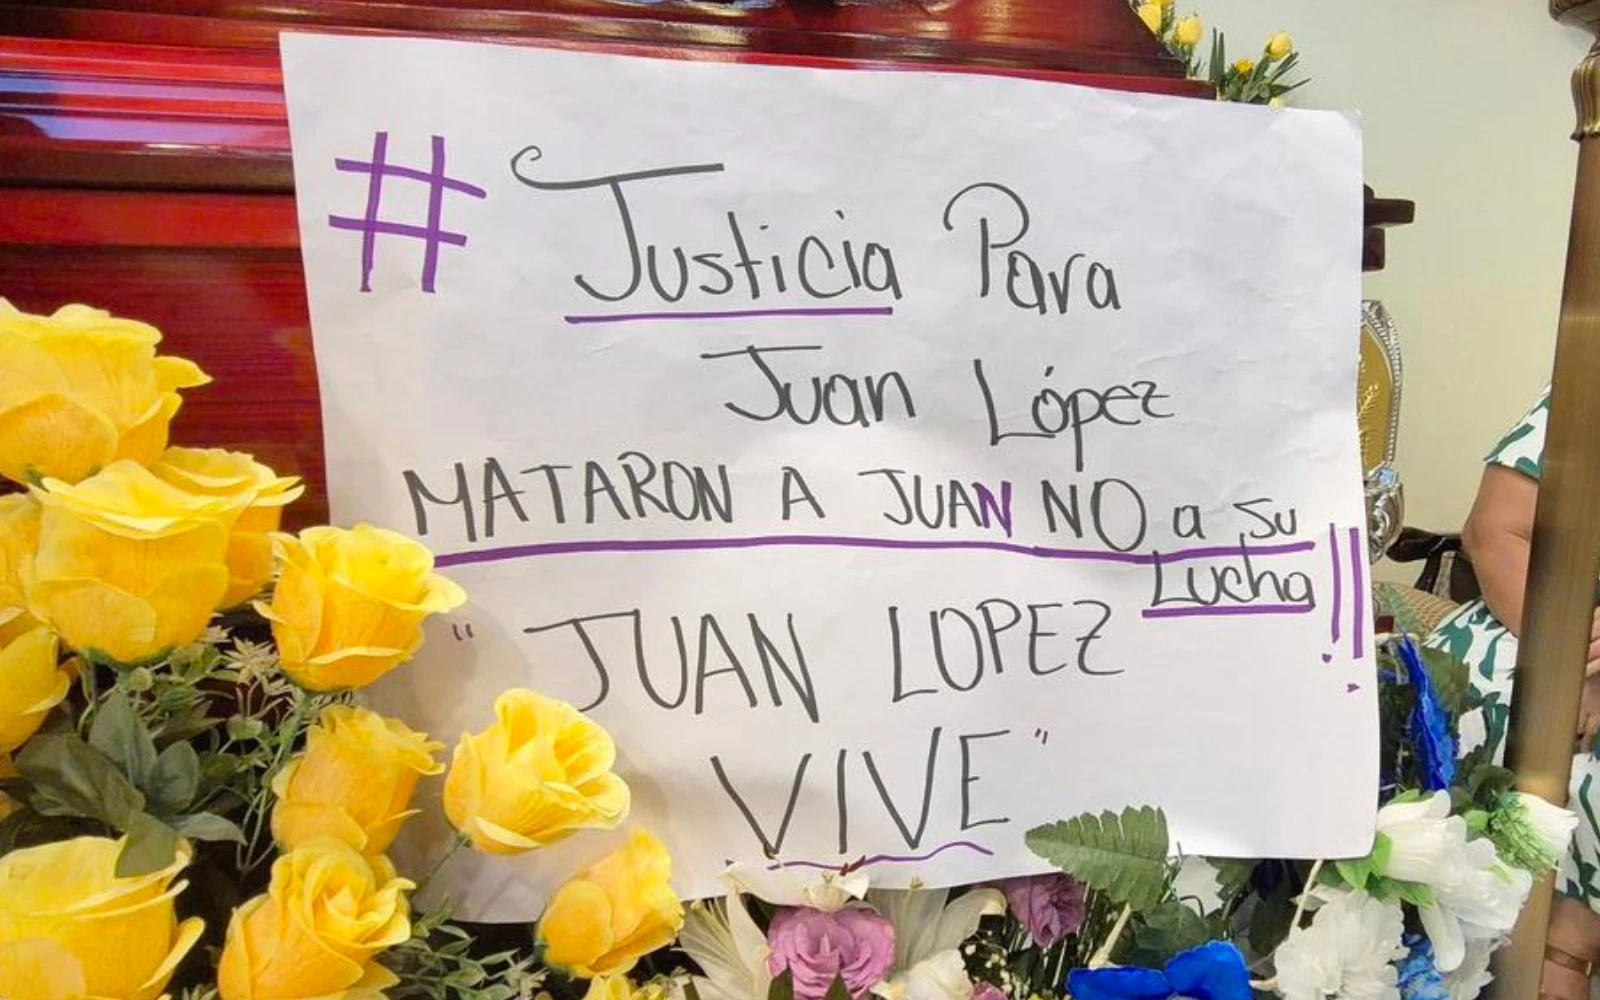 # Justicia Para
Juan López
MATARON A JUAN NO a su
Lucha!!
"JUAN LOPEZ
VIVE"